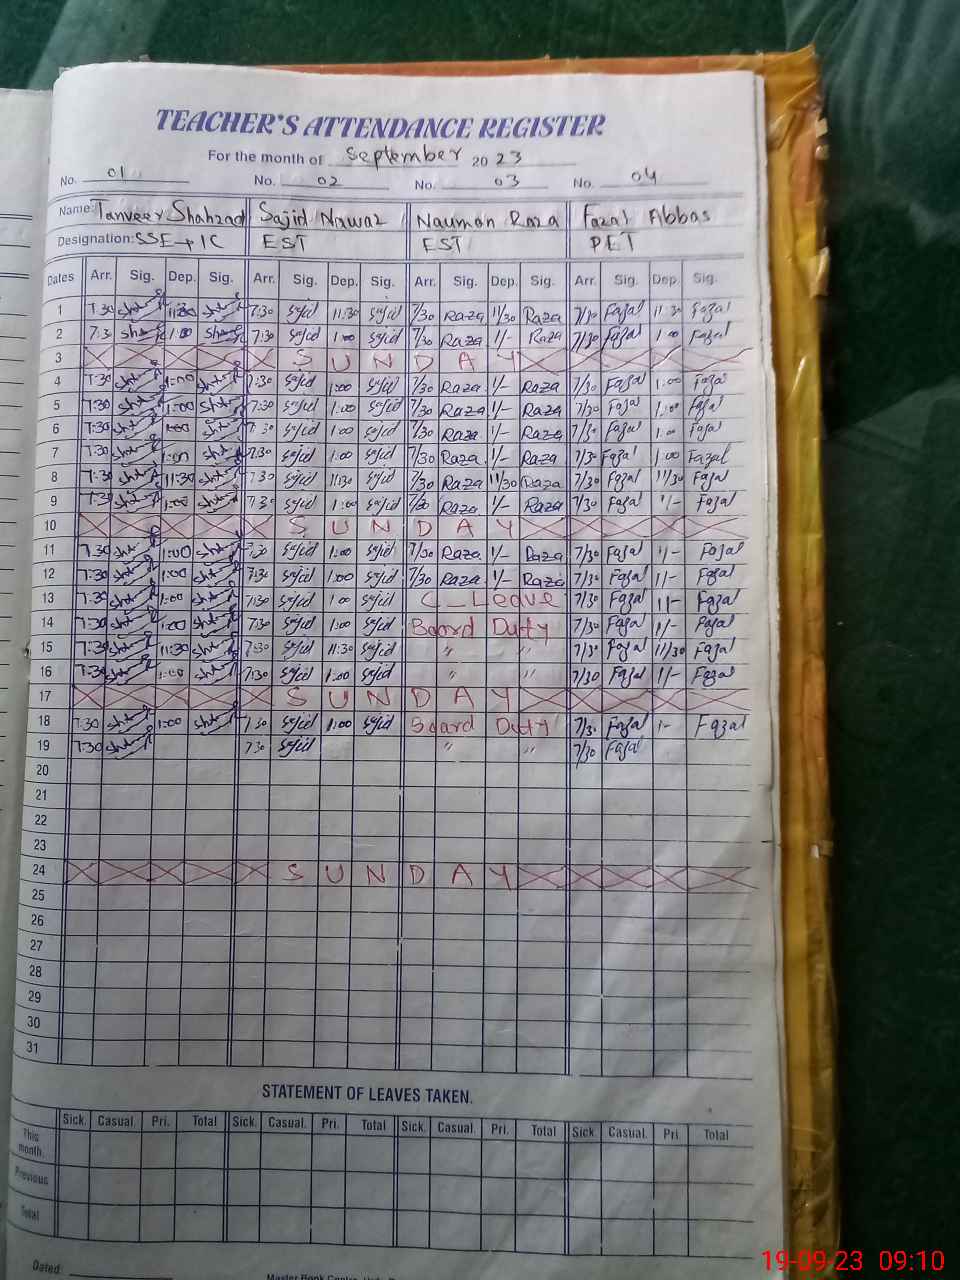 TEACHER'S ATTENDANCE REGISTER
For the month of September 2023
No. 01 No. 02 No. 03 No. 04
Name: Tanveer Shahzad Sajid Nawaz Nauman Raza Fazal Abbas
Designation: SSE → IC EST EST PET
Dates Arr. Sig. Dep. Sig. Arr. Sig. Dep. Sig. Arr. Sig. Dep. Sig. Arr. Sig. Dep. Sig.
1 7:30 11:30 7:30 Sajid 11:30 Sajid 7/30 Raza 11/30 Raza 7/30 Fazal 11:30 Fazal
2 7:3 1:00 7:30 Sajid 1:00 Sajid 7/30 Raza 1/- Raza 7/30 Fazal 1:00 Fazal
3 SUNDAY
4 7:30 1:00 7:30 Sajid 1:00 Sajid 7/30 Raza 1/- Raza 7/30 Fazal 1:00 Fazal
5 7:30 1:00 7:30 Sajid 1:00 Sajid 7/30 Raza 1/- Raza 7/30 Fazal 1:00 Fazal
6 7:30 1:00 7:30 Sajid 1:00 Sajid 7/30 Raza 1/- Raza 7/30 Fazal 1:00 Fazal
7 7:30 1:00 7:30 Sajid 1:00 Sajid 7/30 Raza 1/- Raza 7/30 Fazal 1:00 Fazal
8 7:30 11:30 7:30 Sajid 11:30 Sajid 7/30 Raza 11/30 Raza 7/30 Fazal 11/30 Fazal
9 7:30 1:00 7:30 Sajid 1:00 Sajid 7/30 Raza 1/- Raza 7/30 Fazal 1/- Fazal
10 SUNDAY
11 7:30 1:00 7:30 Sajid 1:00 Sajid 7/30 Raza 1/- Raza 7/30 Fazal 1/- Fazal
12 7:30 1:00 7:30 Sajid 1:00 Sajid 7/30 Raza 1/- Raza 7/30 Fazal 1/- Fazal
13 7:30 1:00 7:30 Sajid 1:00 Sajid C-Leave 7/30 Fazal 1/- Fazal
14 7:30 1:00 7:30 Sajid 1:00 Sajid Board Duty 7/30 Fazal 1/- Fazal
15 7:30 11:30 7:30 Sajid 11:30 Sajid " " 7/30 Fazal 11/30 Fazal
16 7:30 1:00 7:30 Sajid 1:00 Sajid " " 7/30 Fazal 1/- Fazal
17 SUNDAY
18 7:30 1:00 7:30 Sajid 1:00 Sajid Board Duty 7/30 Fazal 1- Fazal
19 7:30 7:30 Sajid " " 7/30 Fazal
20
21
22
23
24 SUNDAY
25
26
27
28
29
30
31
STATEMENT OF LEAVES TAKEN.
Sick. Casual. Pri. Total Sick. Casual. Pri. Total Sick. Casual. Pri. Total Sick. Casual. Pri. Total
This month.
Previous
Total
Dated
Master Book Centre
19-09-23 09:10